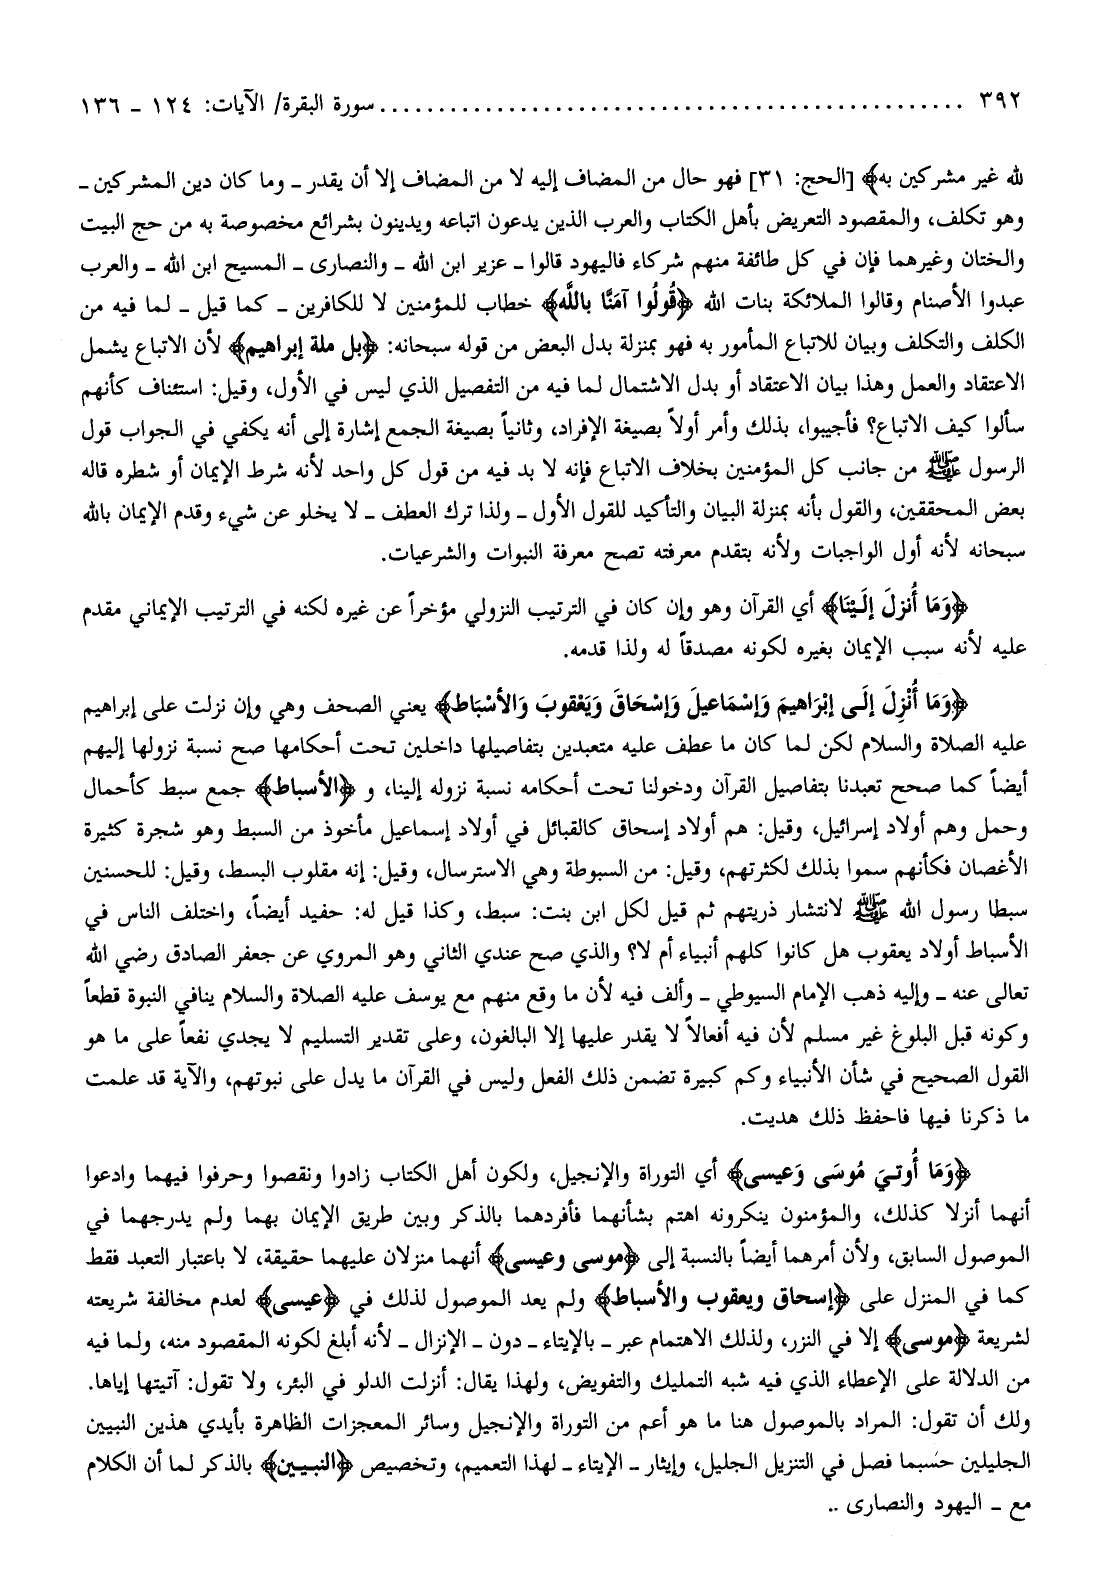 ٣٩٢ .................................................. سورة البقرة/ الآيات: ١٢٤ ـ ١٣٦
لله غير مشركين به﴾ [الحج: ٣١] فهو حال من المضاف إليه لا من المضاف إلا أن يقدر ـ وما كان دين المشركين ـ
وهو تكلف، والمقصود التعريض بأهل الكتاب والعرب الذين يدعون اتباعه ويدينون بشرائع مخصوصة به من حج البيت
والختان وغيرهما فإن في كل طائفة منهم شركاء فاليهود قالوا ـ عزير ابن الله ـ والنصارى ـ المسيح ابن الله ـ والعرب
عبدوا الأصنام وقالوا الملائكة بنات الله ﴿قُولُوا آمَنَّا باللَّه﴾ خطاب للمؤمنين لا للكافرين ـ كما قيل ـ لما فيه من
الكلف والتكلف وبيان للاتباع المأمور به فهو بمنزلة بدل البعض من قوله سبحانه: ﴿بل ملة إبراهيم﴾ لأن الاتباع يشمل
الاعتقاد والعمل وهذا بيان الاعتقاد أو بدل الاشتمال لما فيه من التفصيل الذي ليس في الأول، وقيل: استئناف كأنهم
سألوا كيف الاتباع؟ فأجيبوا، بذلك وأمر أولاً بصيغة الإفراد، وثانياً بصيغة الجمع إشارة إلى أنه يكفي في الجواب قول
الرسول ﷺ من جانب كل المؤمنين بخلاف الاتباع فإنه لا بد فيه من قول كل واحد لأنه شرط الإيمان أو شطره قاله
بعض المحققين، والقول بأنه بمنزلة البيان والتأكيد للقول الأول ـ ولذا ترك العطف ـ لا يخلو عن شيء وقدم الإيمان بالله
سبحانه لأنه أول الواجبات ولأنه بتقدم معرفته تصح معرفة النبوات والشرعيات.
﴿وَمَا أُنزِلَ إلَيْنَا﴾ أي القرآن وهو وإن كان في الترتيب النزولي مؤخراً عن غيره لكنه في الترتيب الإيماني مقدم
عليه لأنه سبب الإيمان بغيره لكونه مصدقاً له ولذا قدمه.
﴿وَمَا أُنْزِلَ إلَى إبْرَاهيمَ وَإسْمَاعيلَ وَإسْحَاقَ وَيَعْقوبَ وَالأسْبَاط﴾ يعني الصحف وهي وإن نزلت على إبراهيم
عليه الصلاة والسلام لكن لما كان ما عطف عليه متعبدين بتفاصيلها داخلين تحت أحكامها صح نسبة نزولها إليهم
أيضاً كما صحح تعبدنا بتفاصيل القرآن ودخولنا تحت أحكامه نسبة نزوله إلينا، و ﴿الأسباط﴾ جمع سبط كأحمال
وحمل وهم أولاد إسرائيل، وقيل: هم أولاد إسحاق كالقبائل في أولاد إسماعيل مأخوذ من السبط وهو شجرة كثيرة
الأغصان فكأنهم سموا بذلك لكثرتهم، وقيل: من السبوطة وهي الاسترسال، وقيل: إنه مقلوب البسط، وقيل: للحسنين
سبطا رسول الله ﷺ لانتشار ذريتهم ثم قيل لكل ابن بنت: سبط، وكذا قيل له: حفيد أيضاً، واختلف الناس في
الأسباط أولاد يعقوب هل كانوا كلهم أنبياء أم لا؟ والذي صح عندي الثاني وهو المروي عن جعفر الصادق رضي الله
تعالى عنه ـ وإليه ذهب الإمام السيوطي ـ وألف فيه لأن ما وقع منهم مع يوسف عليه الصلاة والسلام ينافي النبوة قطعاً
وكونه قبل البلوغ غير مسلم لأن فيه أفعالاً لا يقدر عليها إلا البالغون، وعلى تقدير التسليم لا يجدي نفعاً على ما هو
القول الصحيح في شأن الأنبياء وكم كبيرة تضمن ذلك الفعل وليس في القرآن ما يدل على نبوتهم، والآية قد علمت
ما ذكرنا فيها فاحفظ ذلك هديت.
﴿وَمَا أُوتيَ مُوسَى وَعيسى﴾ أي التوراة والإنجيل، ولكون أهل الكتاب زادوا ونقصوا وحرفوا فيهما وادعوا
أنهما أنزلا كذلك، والمؤمنون ينكرونه اهتم بشأنهما فأفردهما بالذكر وبين طريق الإيمان بهما ولم يدرجهما في
الموصول السابق، ولأن أمرهما أيضاً بالنسبة إلى ﴿موسى وعيسى﴾ أنهما منزلان عليهما حقيقة، لا باعتبار التعبد فقط
كما في المنزل على ﴿إسحاق ويعقوب والأسباط﴾ ولم يعد الموصول لذلك في ﴿عيسى﴾ لعدم مخالفة شريعته
لشريعة ﴿موسى﴾ إلا في النزر، ولذلك الاهتمام عبر ـ بالإيتاء ـ دون ـ الإنزال ـ لأنه أبلغ لكونه المقصود منه، ولما فيه
من الدلالة على الإعطاء الذي فيه شبه التمليك والتفويض، ولهذا يقال: أنزلت الدلو في البئر، ولا تقول: آتيتها إياها.
ولك أن تقول: المراد بالموصول هنا ما هو أعم من التوراة والإنجيل وسائر المعجزات الظاهرة بأيدي هذين النبيين
الجليلين حسبما فصل في التنزيل الجليل، وإيثار ـ الإيتاء ـ لهذا التعميم، وتخصيص ﴿النبيين﴾ بالذكر لما أن الكلام
مع ـ اليهود والنصارى ..